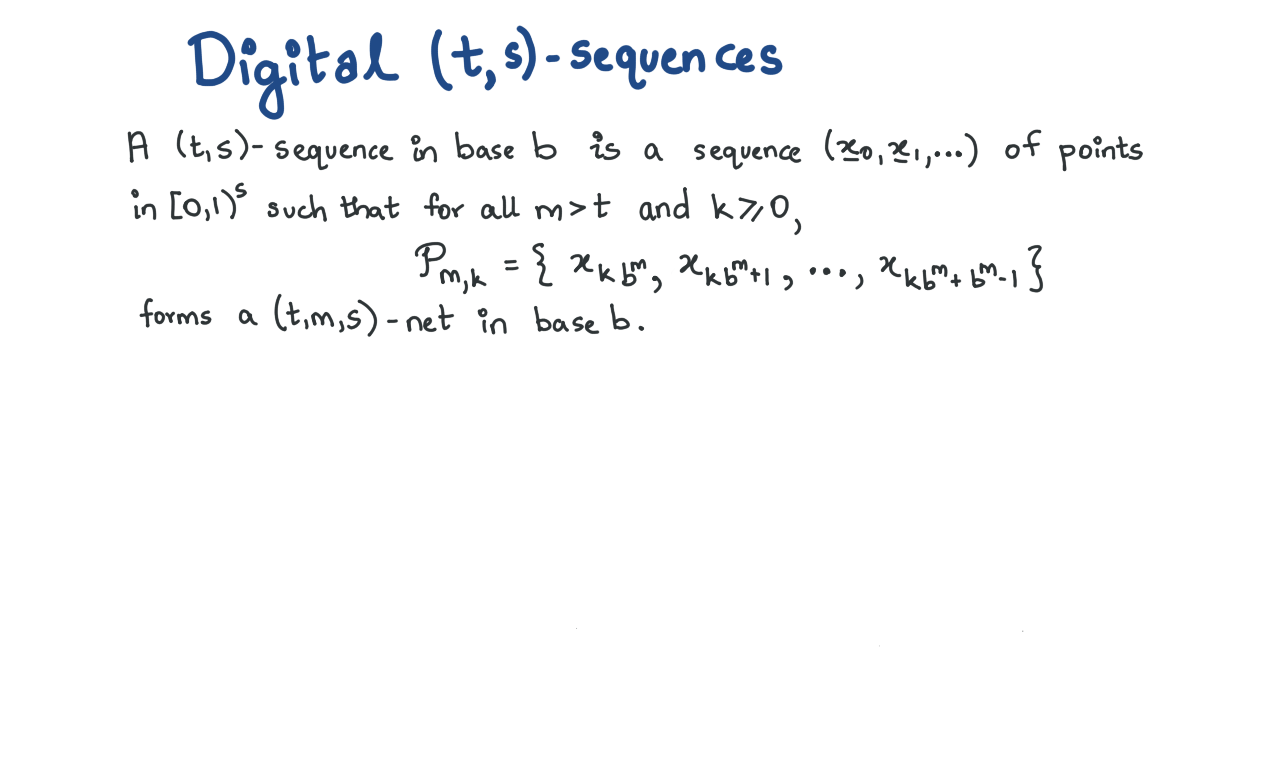 Digital (t,s)-sequences
A (t,s)-sequence in base b is a sequence (x̲₀,x̲₁,...) of points
in [0,1)ˢ such that for all m>t and k⩾0,
𝒫_{m,k} = { x_{kb^m}, x_{kb^m+1}, ..., x_{kb^m+b^m-1} }
forms a (t,m,s)-net in base b.